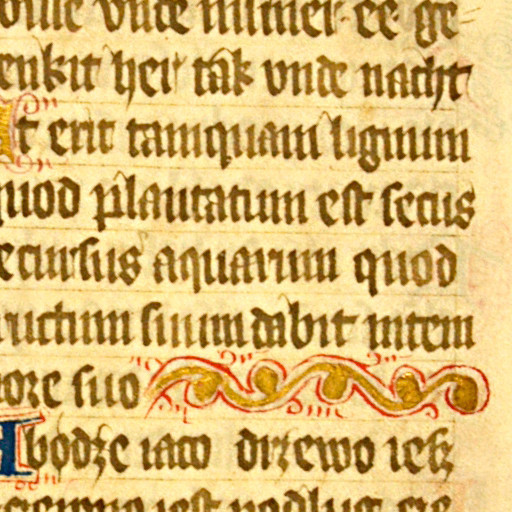 wille vnde ummer ee ge
enkit her tak vnde nacht
Et erit tamquam lignum
quod plantatum est secus
ecursus aquarum quod
ructum suum dabit in tem
ore suo
A bodze iaco drzewo iesz
iest podlug cie